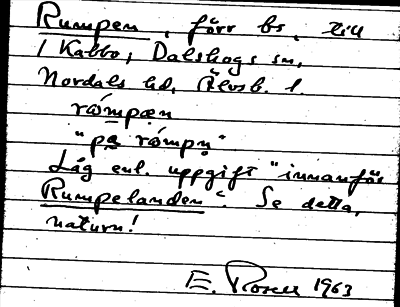 Rumpen, förr bs, till
1 Kabbo, Dalskogs sn,
Nordals hd, Älvsb. l.
rómpæn
"pa rómpn̥"
Låg enl. uppgift "innanför
Rumpelanden". Se detta,
naturn!
E. Rosell 1963